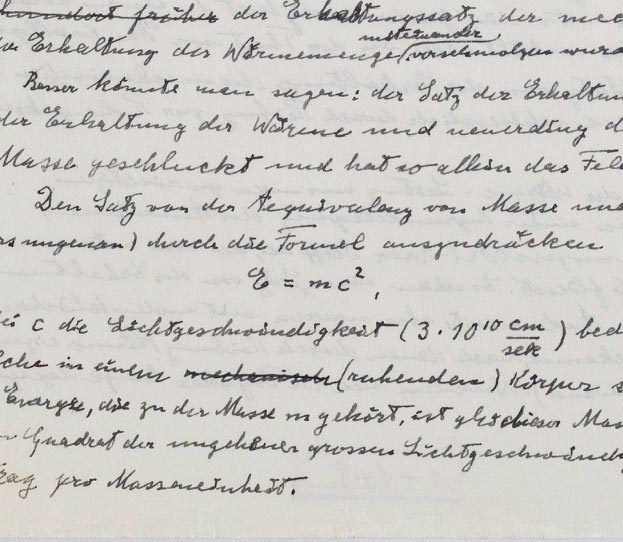 früher der Erhaltungssatz der mec
Erhaltung der Wärmemenge miteinander verschmolzen wurd
Besser könnte man sagen: der Satz der Erhaltun
der Erhaltung der Wärme und neuerding d
Masse geschluckt und hat so allein das Fel
Den Satz von der Aequivalenz von Masse und
ungenau) durch die Formel auszudrücken
E = mc²,
ei c die Lichtgeschwindigkeit (3 . 10¹⁰ cm/sek) bed
che in einem mechanisch (ruhenden) Körper s
Energie, die zu der Masse m gehört, ist gleich dieser Mas
Quadrat der ungeheuer grossen Lichtgeschwindig
rag pro Masseneinheit.